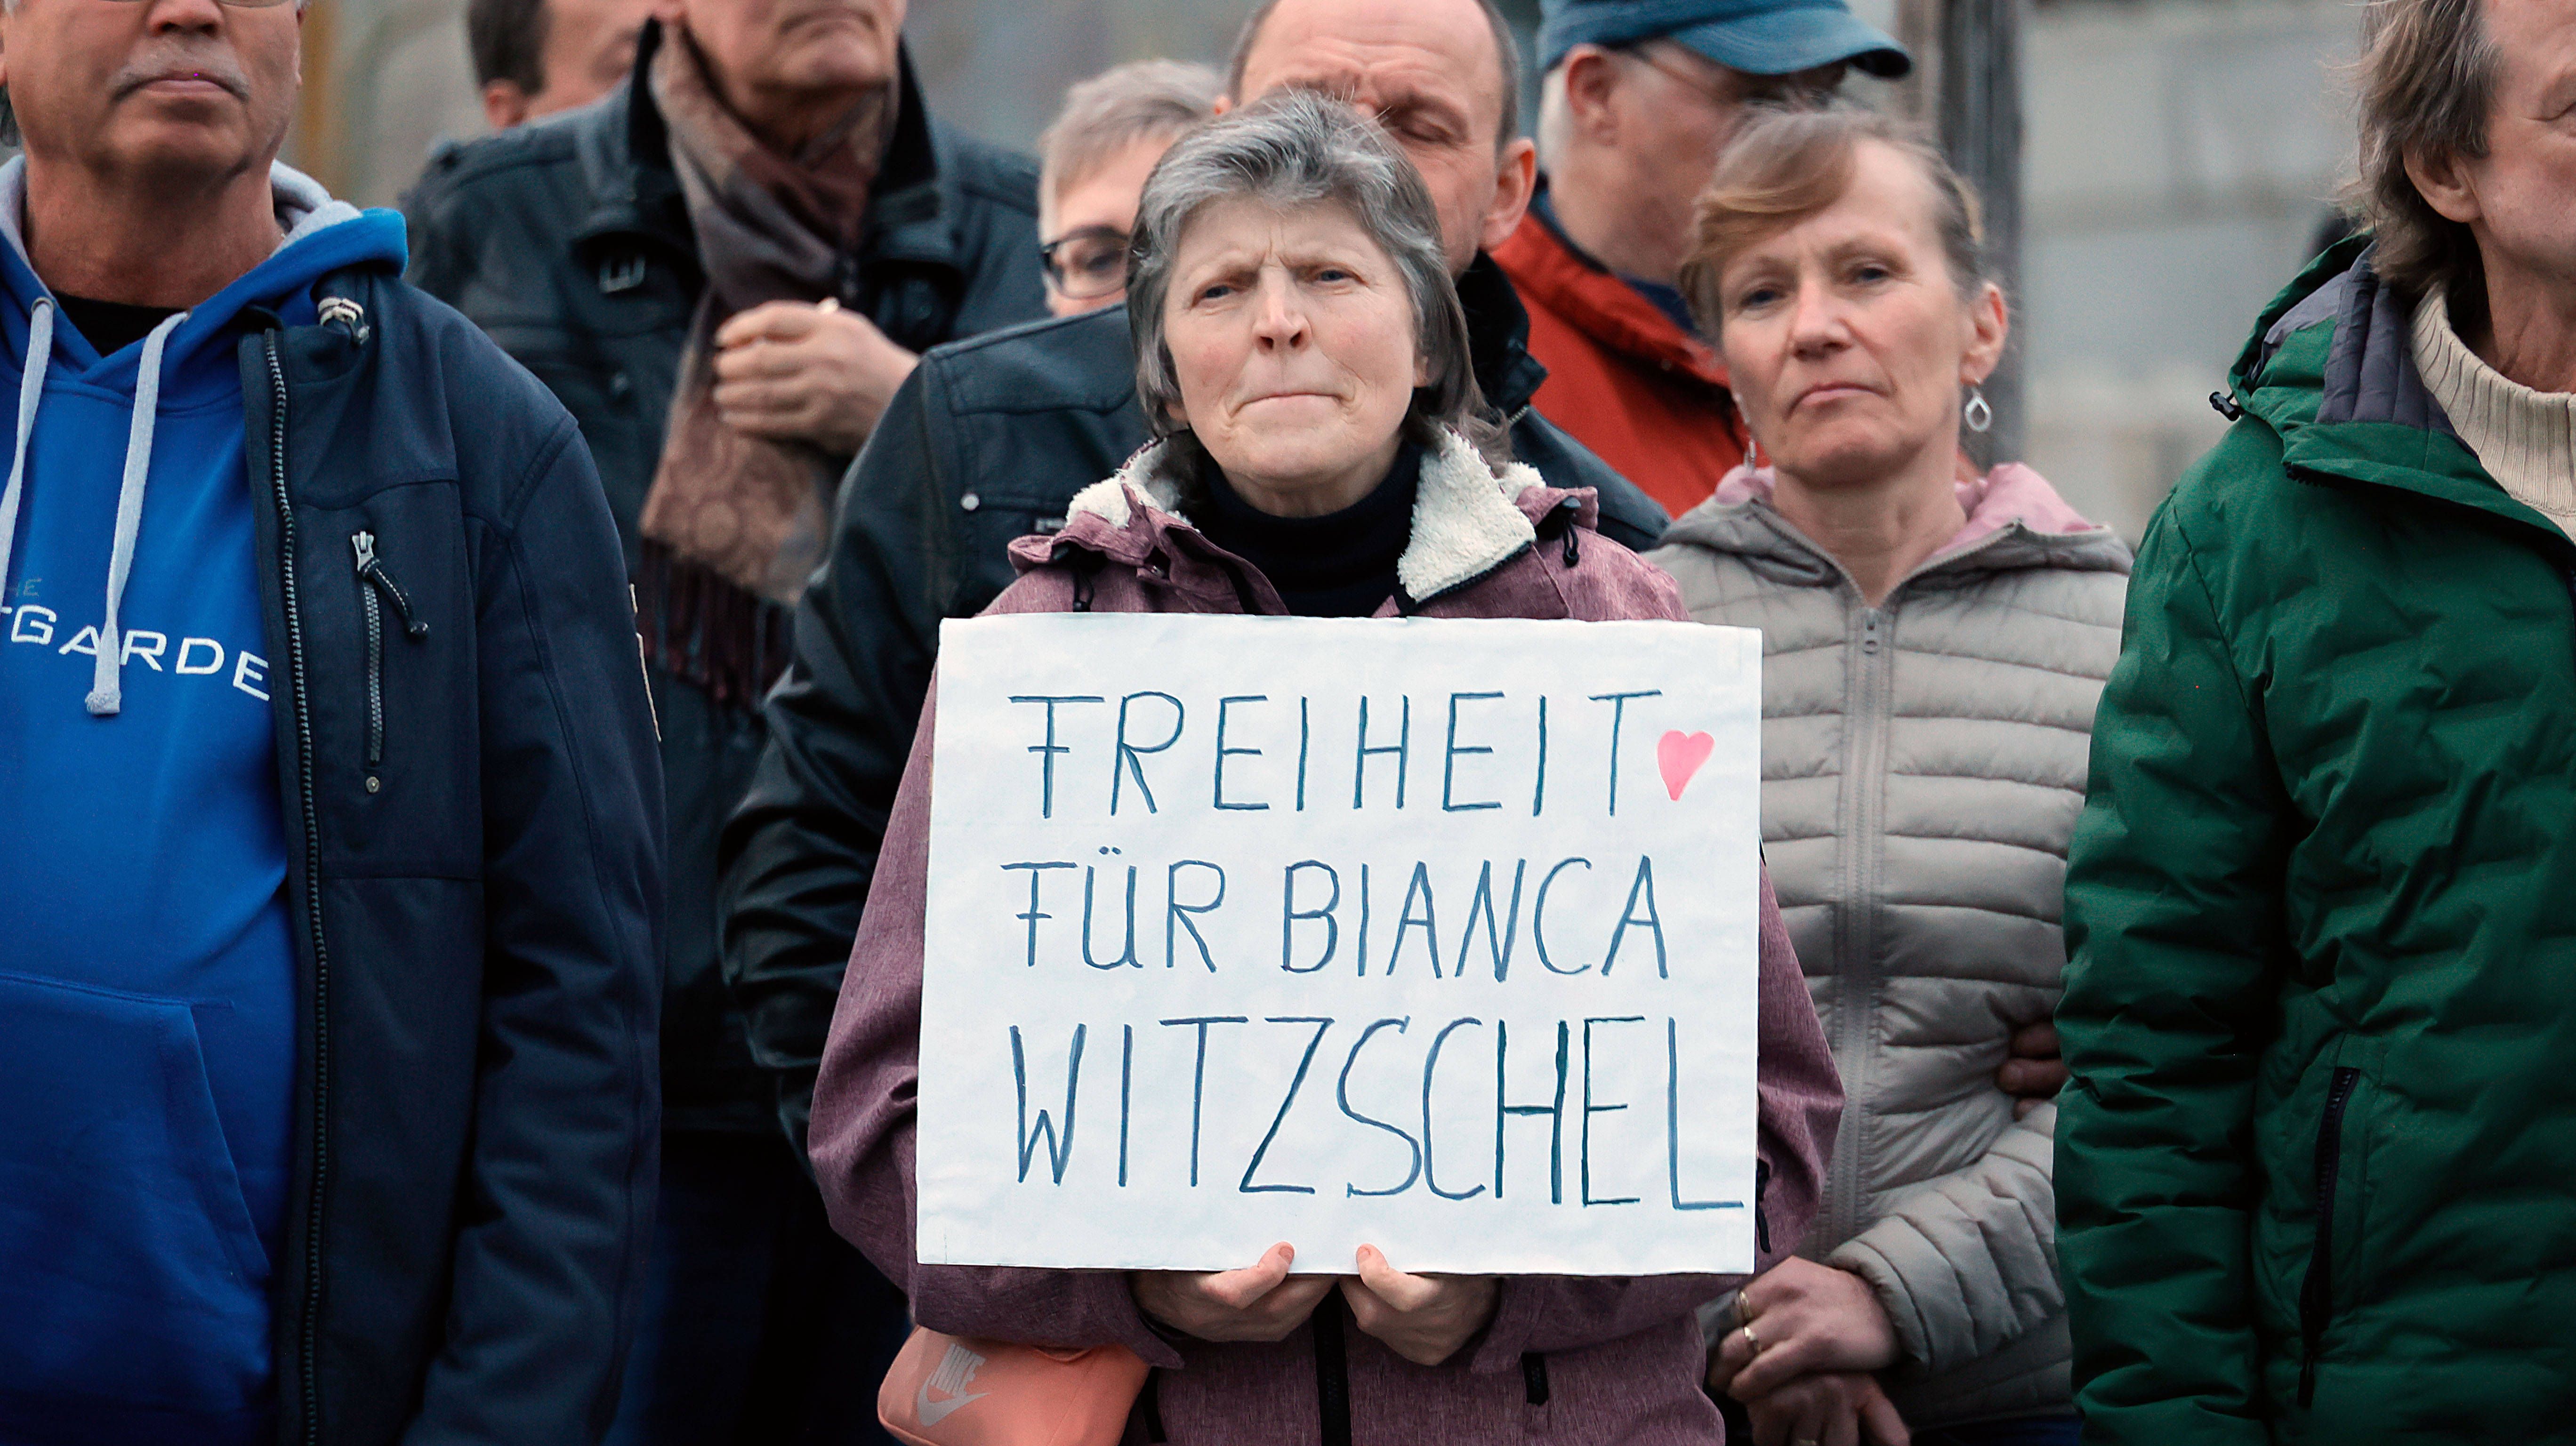 FREIHEIT
FÜR BIANCA
WITZSCHEL
HE
TGARDE
NIKE